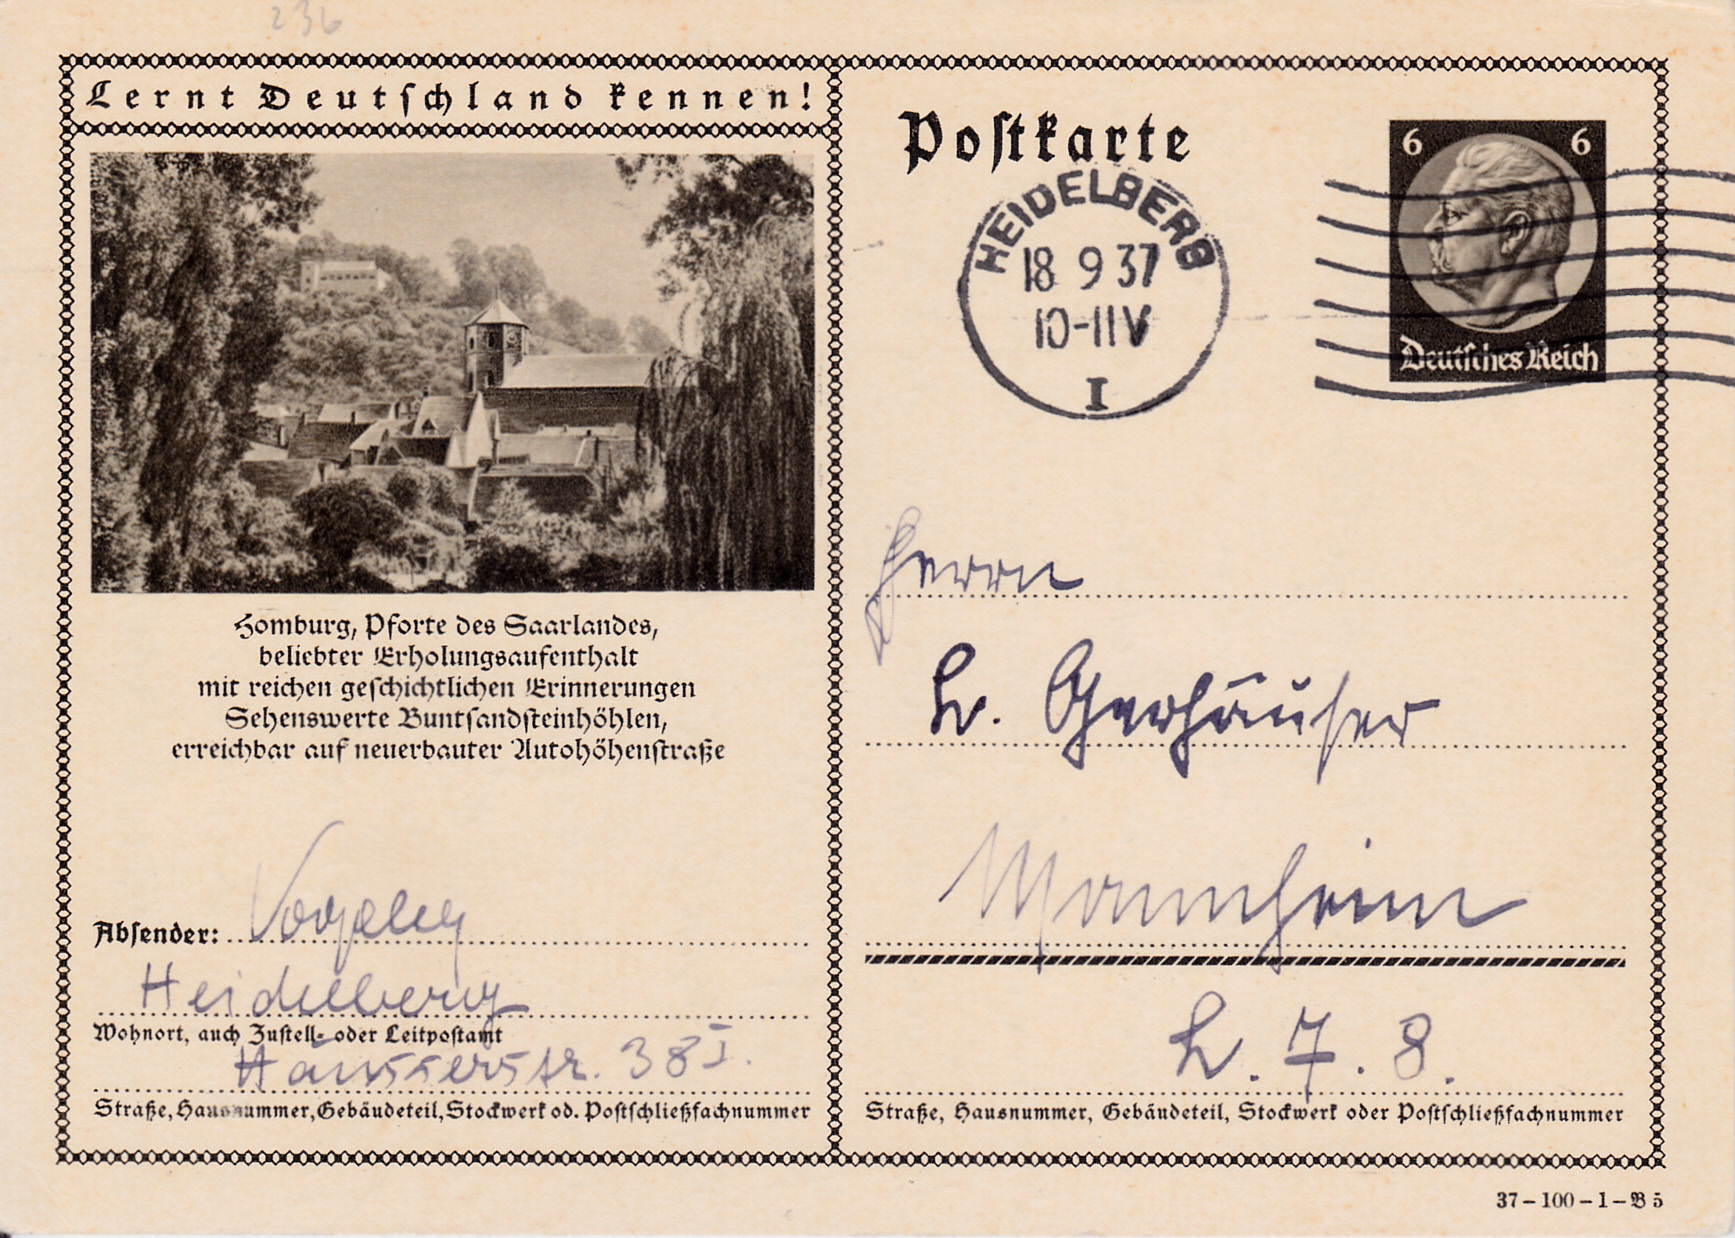 236
Lernt Deutschland kennen!
Homburg, Pforte des Saarlandes,
beliebter Erholungsaufenthalt
mit reichen geschichtlichen Erinnerungen
Sehenswerte Buntsandsteinhöhlen,
erreichbar auf neuerbauter Autohöhenstraße
Absender:
Heidelberg
Wohnort, auch Zustell- oder Leitpostamt
Häusserstr. 38 I.
Straße, Hausnummer, Gebäudeteil, Stockwerk od. Postschließfachnummer
Postkarte
HEIDELBERG
18 9 37
10-11 V
I
6 6
Deutsches Reich
Herrn
L. Gerhäuser
Mannheim
L. 7. 8.
Straße, Hausnummer, Gebäudeteil, Stockwerk oder Postschließfachnummer
37-100-1-B 5